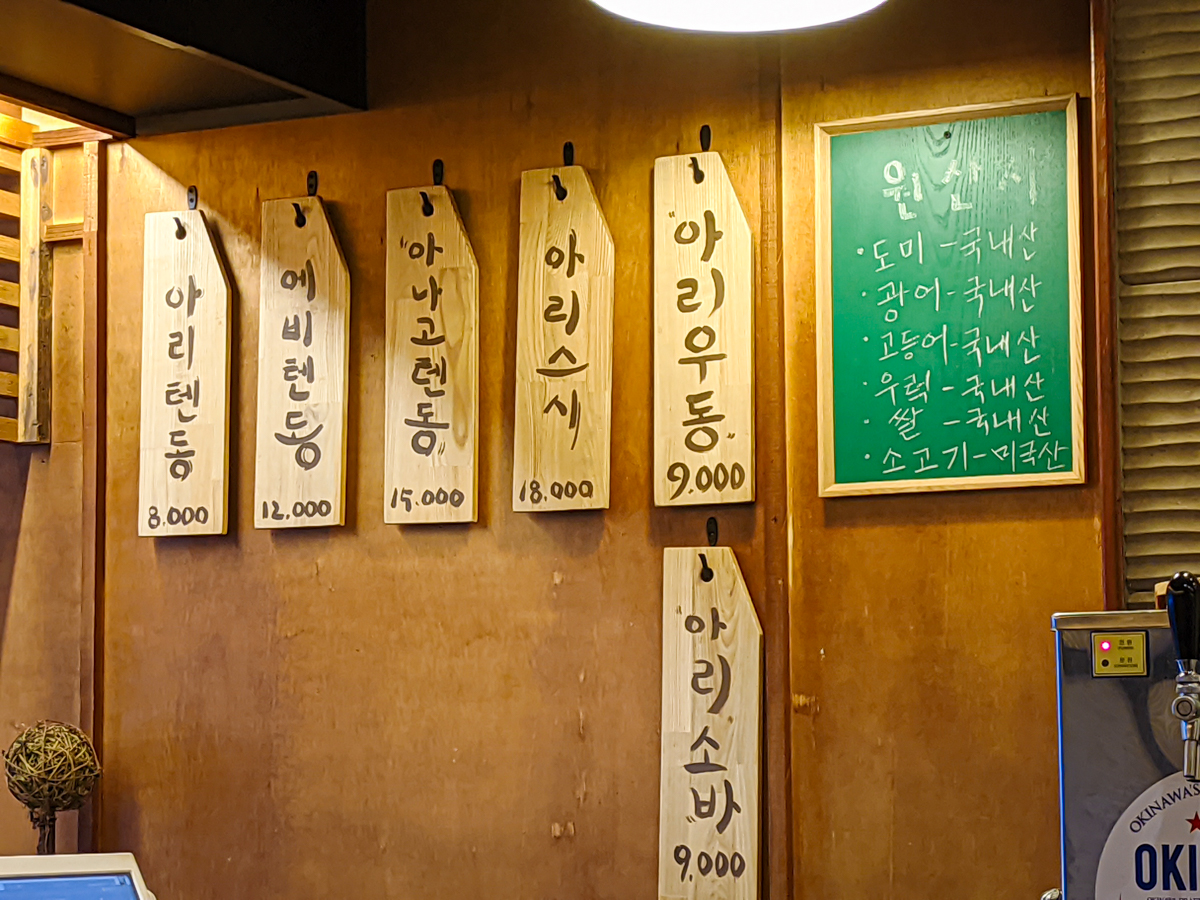 아리텐동
8.000
에비텐동
12.000
"아나고텐동"
15.000
아리스시
18.000
"아리우동"
9.000
"아리소바"
9.000
원산지
·도미-국내산
·광어-국내산
·고등어-국내산
·우럭-국내산
·쌀-국내산
·소고기-미국산
OKINAWA'S
OKI